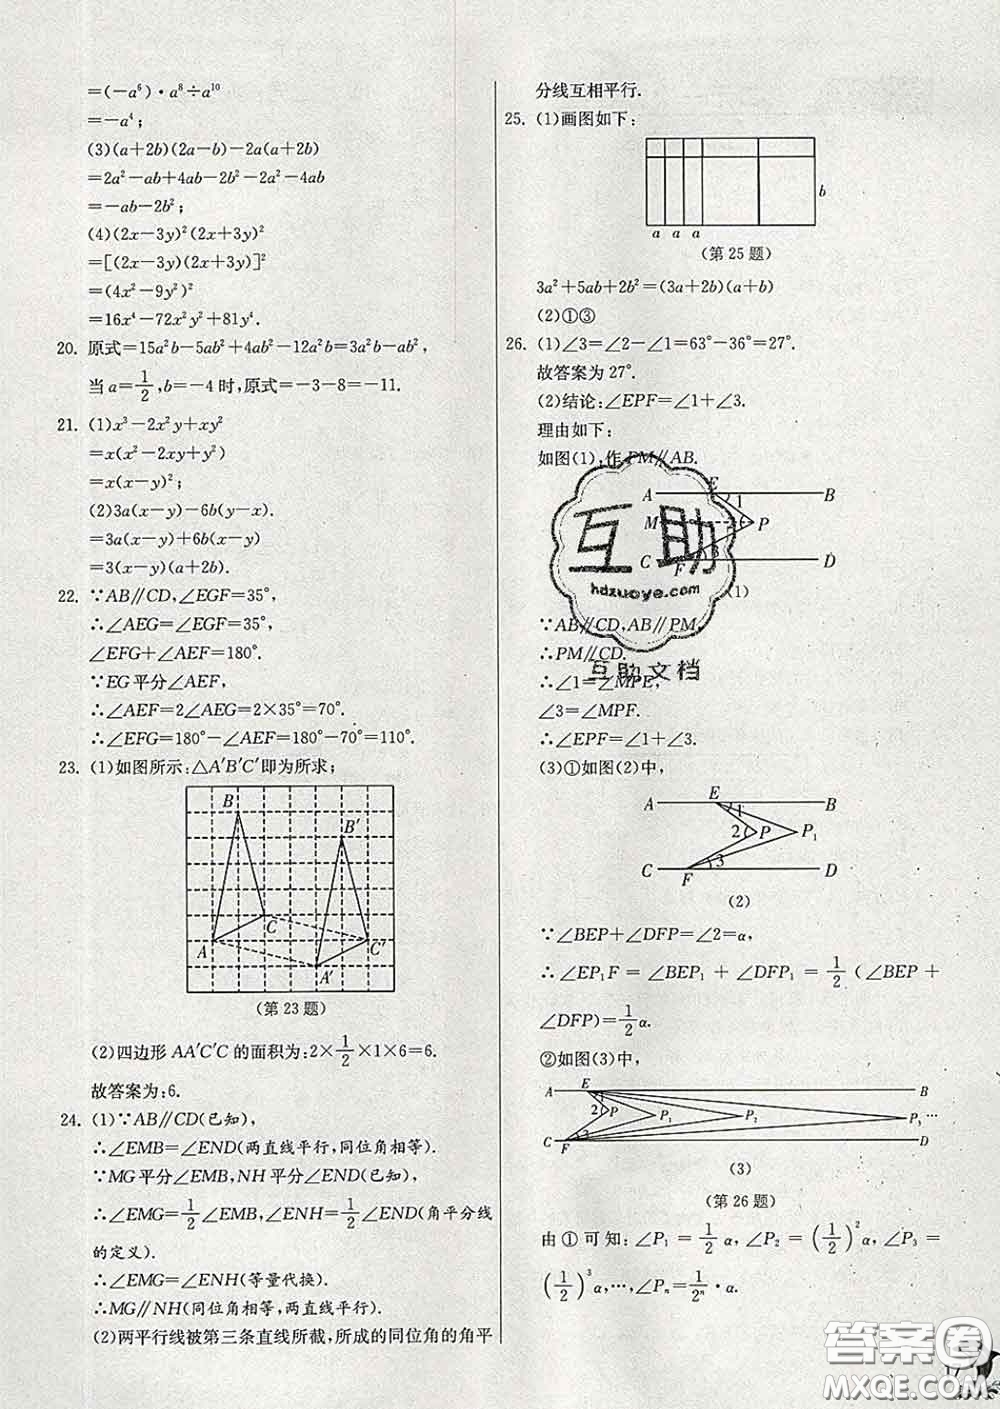 =(-a⁶)·a⁸÷a¹⁰
=-a⁴;
(3)(a+2b)(2a-b)-2a(a+2b)
=2a²-ab+4ab-2b²-2a²-4ab
=-ab-2b²;
(4)(2x-3y)²(2x+3y)²
=[(2x-3y)(2x+3y)]²
=(4x²-9y²)²
=16x⁴-72x²y²+81y⁴.
20. 原式=15a²b-5ab²+4ab²-12a²b=3a²b-ab²,
当a=1/2,b=-4时,原式=-3-8=-11.
21. (1)x³-2x²y+xy²
=x(x²-2xy+y²)
=x(x-y)²;
(2)3a(x-y)-6b(y-x).
=3a(x-y)+6b(x-y)
=3(x-y)(a+2b).
22. ∵AB∥CD,∠EGF=35°,
∴∠AEG=∠EGF=35°,
∠EFG+∠AEF=180°.
∵EG平分∠AEF,
∴∠AEF=2∠AEG=2×35°=70°.
∴∠EFG=180°-∠AEF=180°-70°=110°.
23. (1)如图所示:△A′B′C′即为所求;
B
B′
C
A
C′
A′
(第23题)
(2)四边形AA′C′C的面积为:2×1/2×1×6=6.
故答案为:6.
24. (1)∵AB∥CD(已知),
∴∠EMB=∠END(两直线平行,同位角相等).
∵MG平分∠EMB,NH平分∠END(已知),
∴∠EMG=1/2∠EMB,∠ENH=1/2∠END(角平分线
的定义).
∴∠EMG=∠ENH(等量代换).
∴MG∥NH(同位角相等,两直线平行).
(2)两平行线被第三条直线所截,所成的同位角的角平
分线互相平行.
25. (1)画图如下:
b
a a a
(第25题)
3a²+5ab+2b²=(3a+2b)(a+b)
(2)①③
26. (1)∠3=∠2-∠1=63°-36°=27°.
故答案为27°.
(2)结论:∠EPF=∠1+∠3.
理由如下:
如图(1),作PM∥AB.
A E B
1
M P
C F 3 D
(1)
互助
hdzuoye.com
互助文档
∵AB∥CD,AB∥PM,
∴PM∥CD.
∴∠1=∠MPE,
∠3=∠MPF.
∴∠EPF=∠1+∠3.
(3)①如图(2)中,
A E B
1
2 P P₁
3
C F D
(2)
∵∠BEP+∠DFP=∠2=α,
∴∠EP₁F=∠BEP₁+∠DFP₁=1/2(∠BEP+
∠DFP)=1/2α.
②如图(3)中,
A E B
2 P P₁ P₂ P₃ …
3
C F D
(3)
(第26题)
由①可知:∠P₁=1/2α,∠P₂=(1/2)²α,∠P₃=
(1/2)³α,…,∠Pₙ=1/2ⁿ·α.
答案圈
MXQE.COM